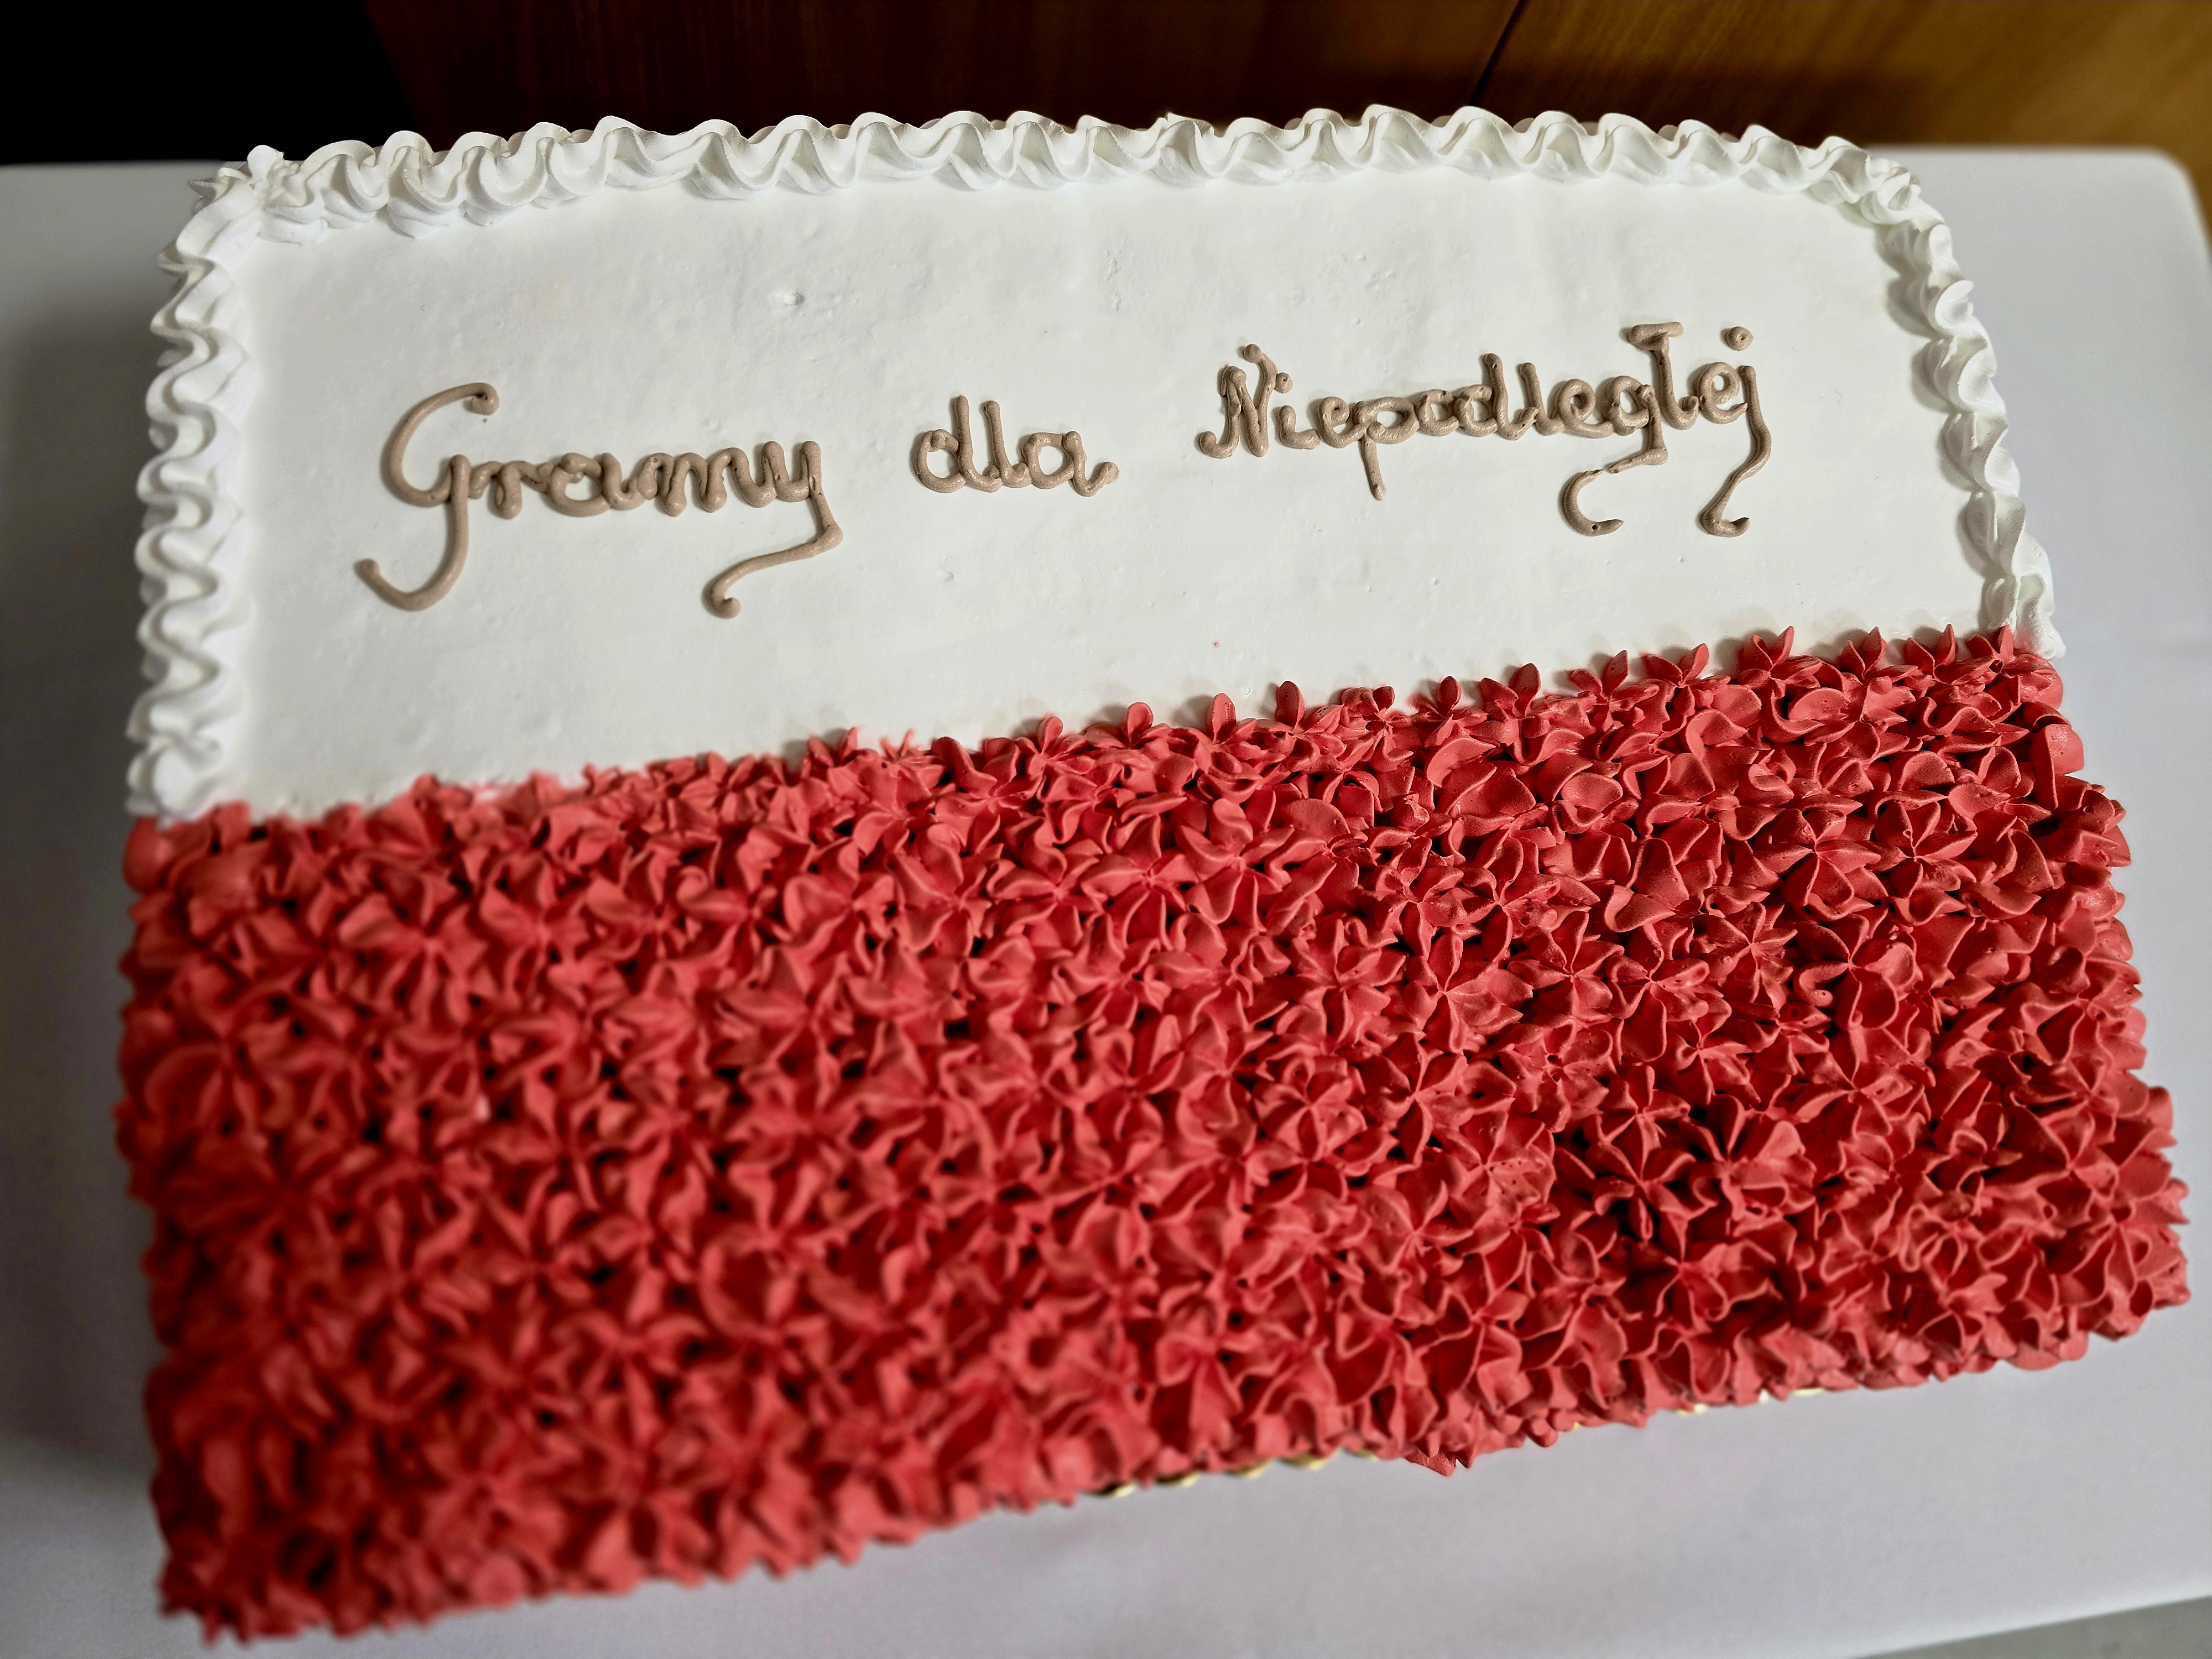 Gramy dla Niepodległej